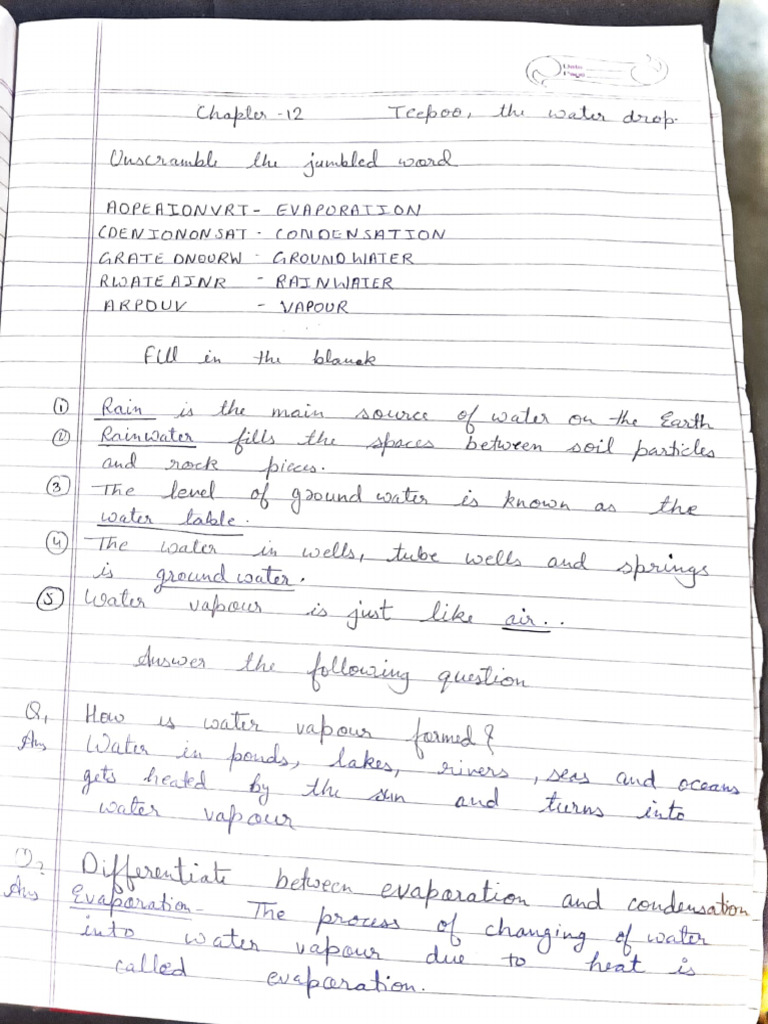 Date
Page
Chapter -12 Teepoo, the water drop.
Unscramble the jumbled word
AOPEAIONVRT - EVAPORATION
CDENIONONSAT - CONDENSATION
GRATEDNOURW - GROUNDWATER
RWATEAINR - RAINWATER
ARPOUV - VAPOUR
Fill in the blanck
① Rain is the main source of water on the Earth
② Rainwater fills the spaces between soil particles
and rock pieces.
③ The level of groundwater is known as the
water table.
④ The water in wells, tube wells and springs
is groundwater.
⑤ Water vapour is just like air..
Answer the following question
Q1 How is water vapour formed?
Ans Water in ponds, lakes, rivers, seas and oceans
gets heated by the sun and turns into
water vapour
Q2 Differentiate between evaporation and condensation
Ans Evaporation - The process of changing of water
into water vapour due to heat is
called evaporation.